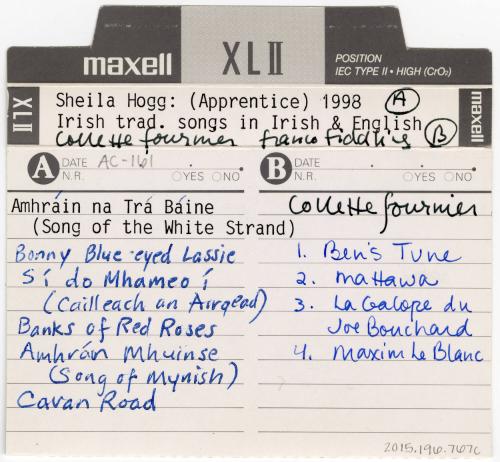 maxell XLII POSITION
IEC TYPE II • HIGH (CrO₂)
XLII Sheila Hogg: (Apprentice) 1998 A maxell
Irish trad. songs in Irish & English
Collette fournier franco fiddling B
A DATE AC-161
N.R. YES NO
Amhráin na Trá Báine
(Song of the White Strand)
Bonny Blue-eyed Lassie
Sí do Mhameo í
(Cailleach an Airgead)
Banks of Red Roses
Amhrán Mhuinse
(Song of Mynish)
Cavan Road
B DATE
N.R. YES NO
Collette fournier
1. Ben's Tune
2. Mattawa
3. La Galope du
Joe Bouchard
4. Maxim Le Blanc
2015.196.767c